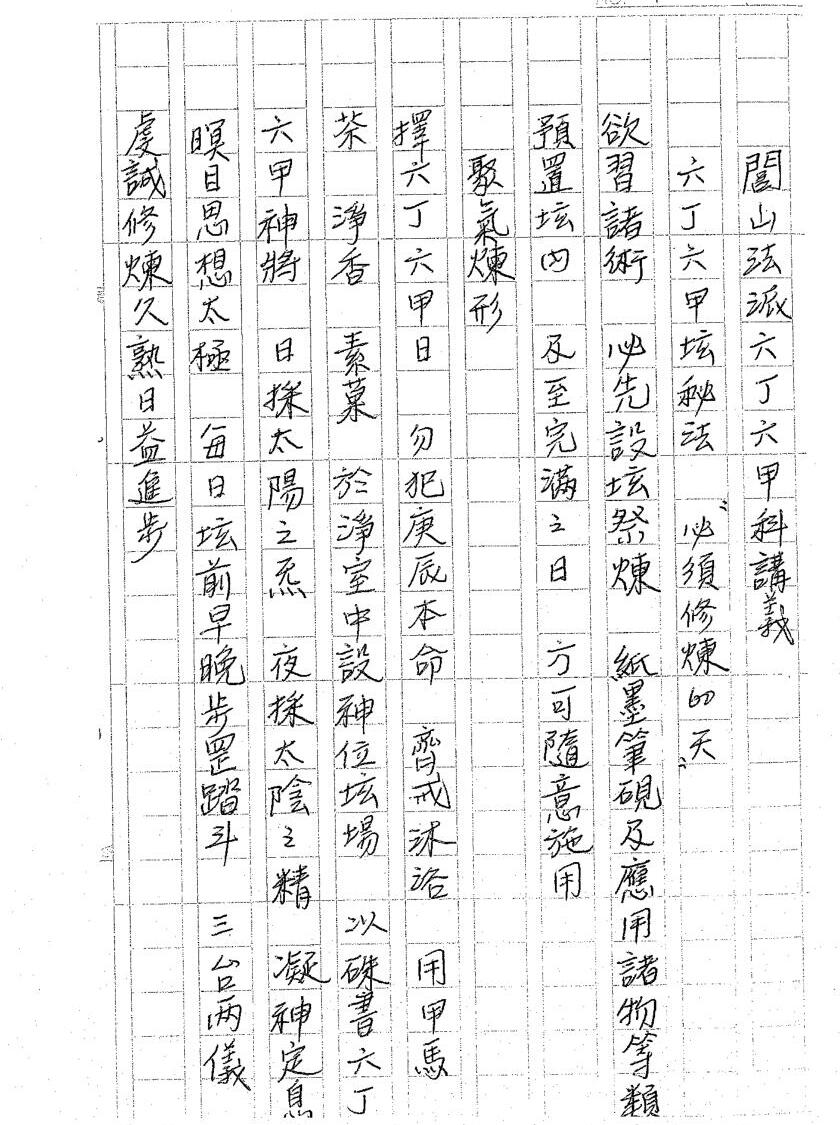 閭山法派六丁六甲科講義
六丁六甲坛秘法 "必須修煉60天"
欲習諸術 必先設坛祭煉 紙墨筆硯及應用諸物等類
預置坛内 及至完滿之日 方可隨意施用
聚氣煉形
擇六丁六甲日 勿犯庚辰本命 齊戒沐浴 用甲馬
茶 淨香 素菓 於淨室中設神位坛場 以硃書六丁
六甲神將 日採太陽之炁 夜採太陰之精 凝神定息
瞑目思想太極 每日坛前早晚步罡踏斗 三台两儀
虔誠修煉久熟日益進步